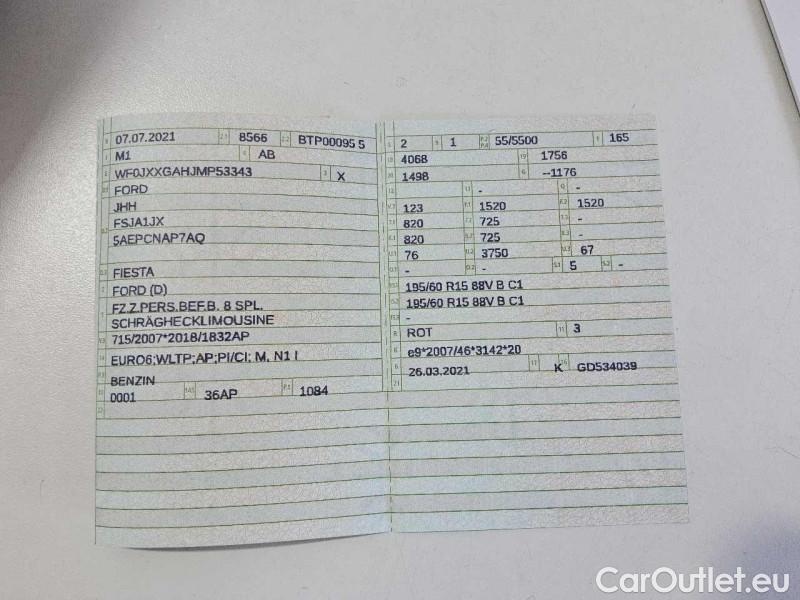 07.07.2021 8566 BTP00095 5
M1 AB
WF0JXXGAHJMP53343 X
FORD
JHH
FSJA1JX
5AEPCNAP7AQ
FIESTA
FORD (D)
FZ.Z.PERS.BEF.B. 8 SPL.
SCHRÄGHECKLIMOUSINE
715/2007*2018/1832AP
EURO6;WLTP;AP;PI/CI; M, N1 I
BENZIN
0001 36AP 1084
2 1 55/5500 165
4068 1756
1498 --1176
- -
123 1520 1520
820 725 -
820 725 -
76 3750 67
- - 5 -
195/60 R15 88V B C1
195/60 R15 88V B C1
-
ROT 3
e9*2007/46*3142*20
26.03.2021 K GD534039
CarOutlet.eu